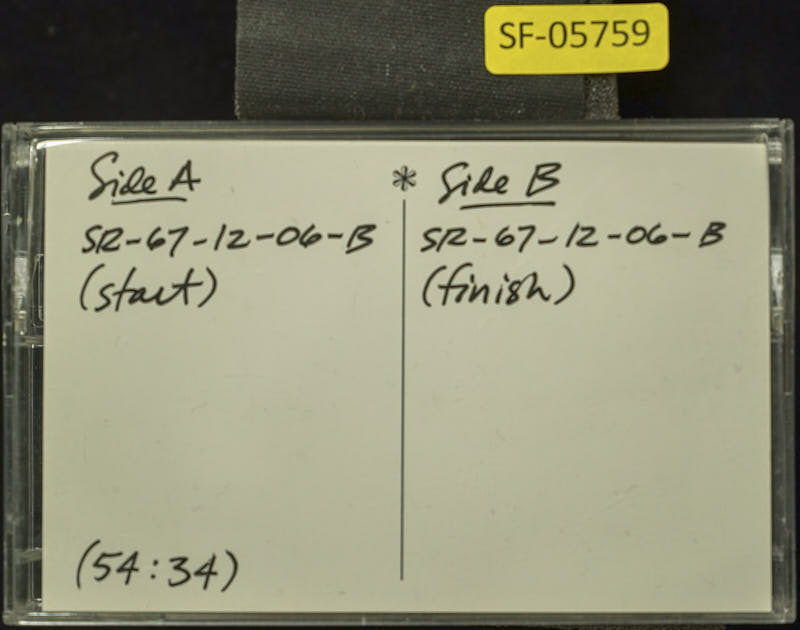 SF-05759
Side A
SR-67-12-06-B
(start)
(54:34)
* Side B
SR-67-12-06-B
(finish)